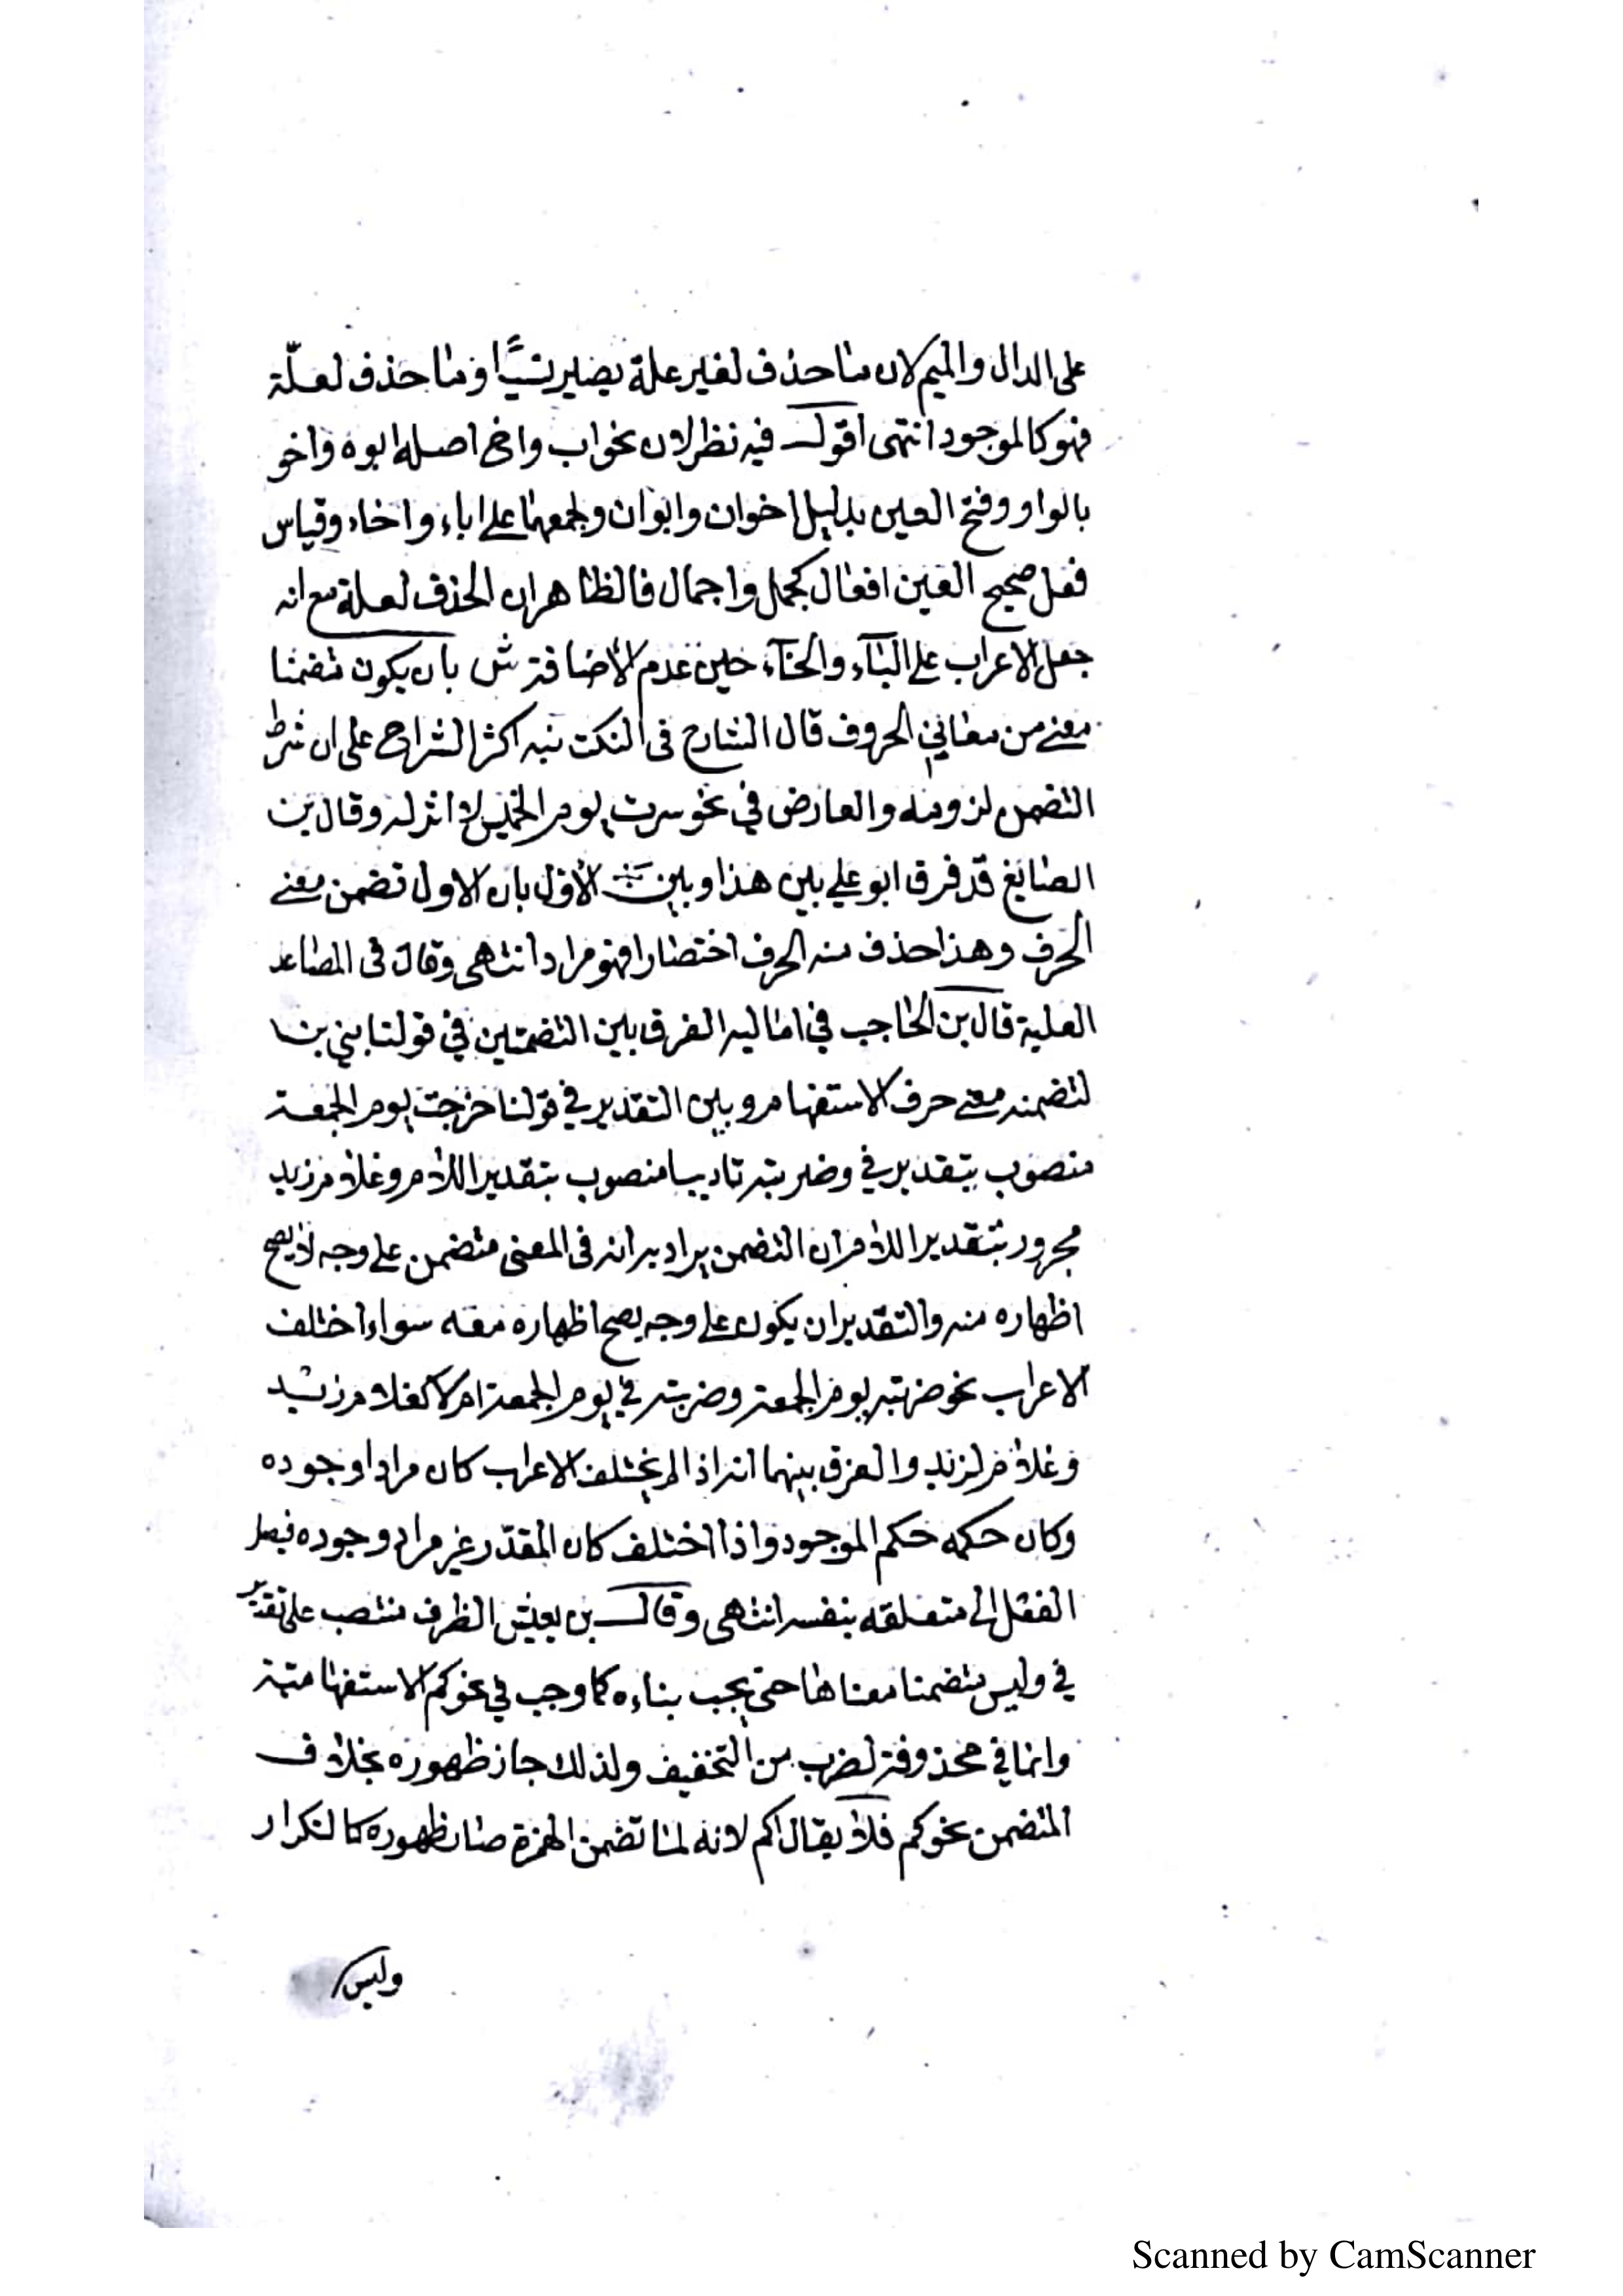 على الدال والميم لان ما حذف لغير علة يصير نسيًا وما حذف لعلّة
فهو كالموجود انتهى اقول فيه نظر لان نحو اب واخ اصله ابوه واخو
بالواو وفتح العين بدليل اخوان وابوان ولجمعهما على اباء واخاء وقياس
فعل صحيح العين افعال كجمل واجمال فالظاهر ان الحذف لعلة مع انه
جعل الاعراب على البآء والخآء حين عدم الاضافة ش بان يكون متضمنا
معنى من معاني الحروف قال الشارح فى النكت نبه اكثر الشراح على ان شرط
التضمن لزومه والعارض في نحو سرت يوم الخميس لا اثر له وقال بن
الصايغ قد فرق ابو علي بين هذا وبين الاول بان الاول تضمن معنى
الحرف وهذا حذف منه الحرف اختصارا فهو مراد انتهى وقال فى المصاعد
العلية قال بن الحاجب في اماليه الفرق بين التضمين في قولنا بني بنا
لتضمنه معنى حرف الاستفهام وبين التقدير في قولنا خرجت يوم الجمعة
منصوب بتقدير في وضربته تاديبا منصوب بتقدير اللام وغلام زيد
مجرور بتقدير اللام ان التضمن يراد به انه فى المعنى متضمن على وجه لا يصح
اظهاره منه والتقدير ان يكون على وجه يصح اظهاره معه سواء اختلف
الاعراب نحو ضربته يوم الجمعة وضربته في يوم الجمعة ام لا كغلام زيد
وغلام لزيد والفرق بينهما انه اذا لم يختلف الاعراب كان مرادا وجوده
وكان حكمه حكم الموجود واذا اختلف كان المقدّر غير مراد وجوده فيصل
الفعل الى متعلقه بنفسه انتهى وقال بن يعيش الظرف منتصب على تقدير
في وليس متضمنا معناها حتى يجب بناءه كما وجب في نحو كم الاستفهامية
وانما في محذوفة لضرب من التخفيف ولذلك جاز ظهوره بخلاف
المتضمن نحو كم فلا يقال اكم لانه لما تضمن الهمزة صار ظهوره كالتكرار
وليس
Scanned by CamScanner